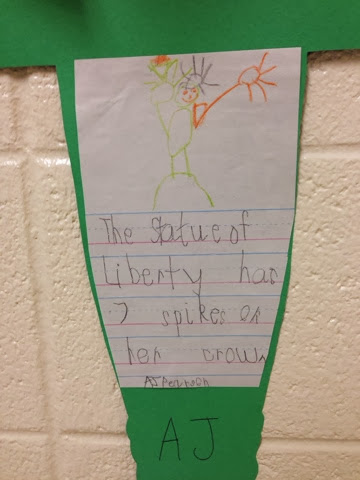 The Statue of
Liberty has
7 spikes on
her crown
AJ
AJ